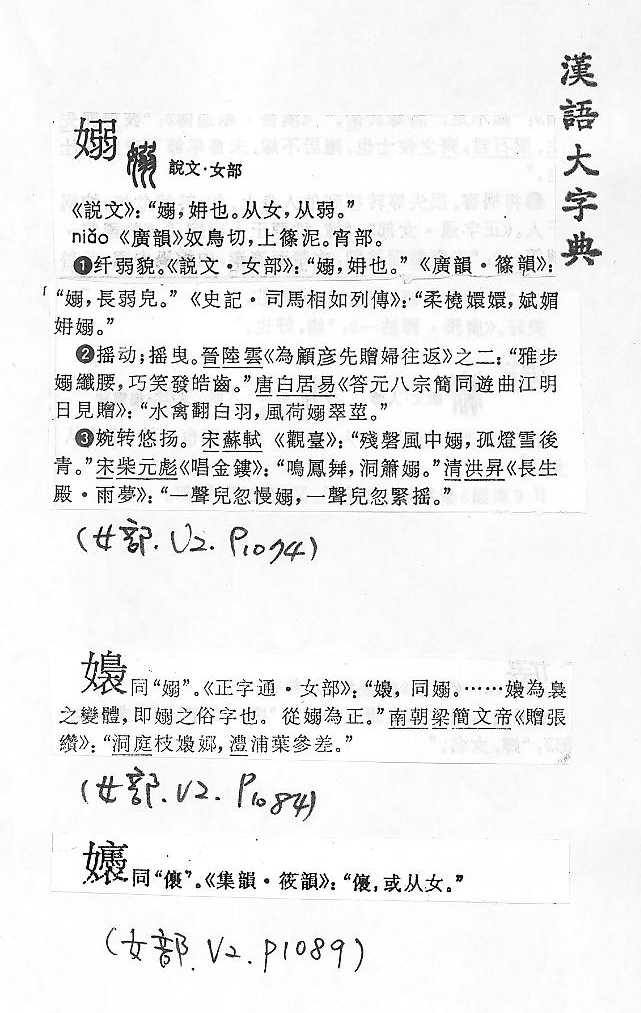 漢語大字典
嫋 説文·女部
《説文》：“嫋，姌也。从女，从弱。”
niǎo 《廣韻》奴鳥切，上篠泥。宵部。
❶纤弱貌。《説文·女部》：“嫋，姌也。”《廣韻·篠韻》：
“嫋，長弱皃。”《史記·司馬相如列傳》：“柔橈嬛嬛，娬媚
姌嫋。”
❷摇动；摇曳。晉陸雲《為顧彦先贈婦往返》之二：“雅步
嫋纖腰，巧笑發皓齒。”唐白居易《答元八宗簡同遊曲江明
日見贈》：“水禽翻白羽，風荷嫋翠莖。”
❸婉转悠扬。宋蘇軾《觀臺》：“殘磬風中嫋，孤燈雪後
青。”宋柴元彪《唱金鏤》：“鳴鳳舞，洞簫嫋。”清洪昇《長生
殿·雨夢》：“一聲兒忽慢嫋，一聲兒忽緊摇。”
(女部. V2. P1074)
嬝 同“嫋”。《正字通·女部》：“嬝，同嫋。……嬝為裊
之變體，即嫋之俗字也。從嫋為正。”南朝梁簡文帝《贈張
纘》：“洞庭枝嬝娜，澧浦葉參差。”
(女部. V2. P1084)
同“”。《集韻·筱韻》：“，或从女。”
(女部. V2. P1089)